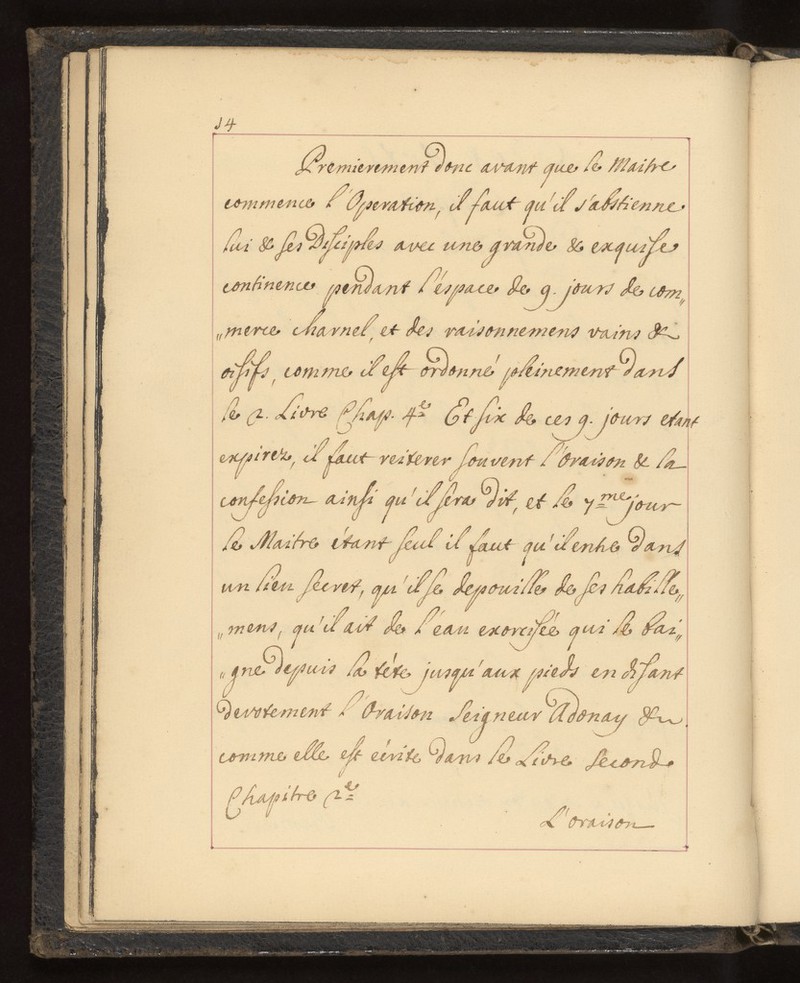 14
Premierement donc avant que le Maitre
commence l'Operation, il faut qu'il s'abstienne
lui & ses Disciples avec une grande & exquise
continence pendant l'éspace de 9. jours de com„
„merce charnel, et des raisonnemens vains &
oisifs, comme il est ordonné pleinement dans
le 2. Livre Chap. 4e Et six de ces 9. jours etant
expirez, il faut reiterer souvent l'Oraison & la
confession ainsi qu'il sera dit, et le 7me jour
le Maitre étant seul il faut qu'il entre dans
un lieu secret, qu'il se depouille de ses habille„
„mens, qu'il ait de l'eau exorcisée qui le bai„
„gne depuis la téte jusqu'aux pieds en disant
devotement l'Oraison Seigneur Adonay &c.
comme elle est écrite dans le Livre Second
Chapitre 2e
L'oraison